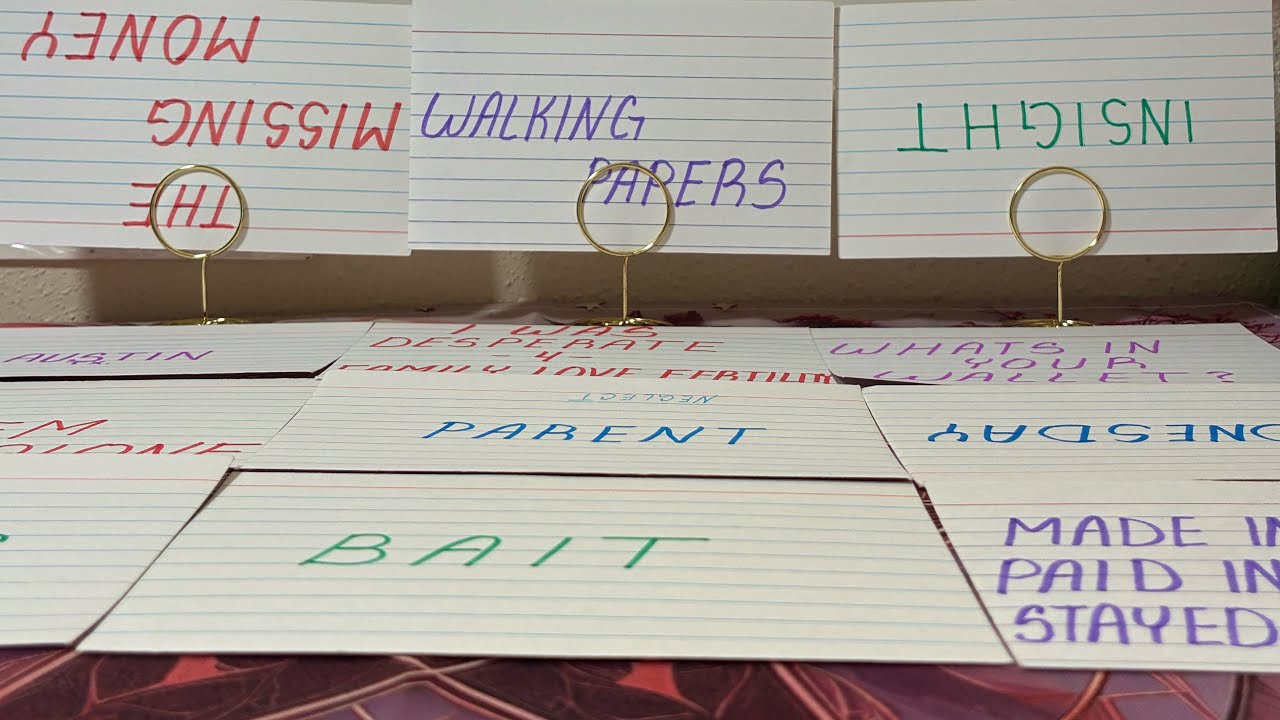 THE
MISSING
MONEY
WALKING
PAPERS
INSIGHT
AUSTIN
I WAS
DESPERATE
-4-
FAMILY LOVE FERTILITY
WHATS IN
YOUR
WALLET?
EM
NEGLECT
PARENT
ONESDAY
BAIT
MADE IN
PAID IN
STAYED